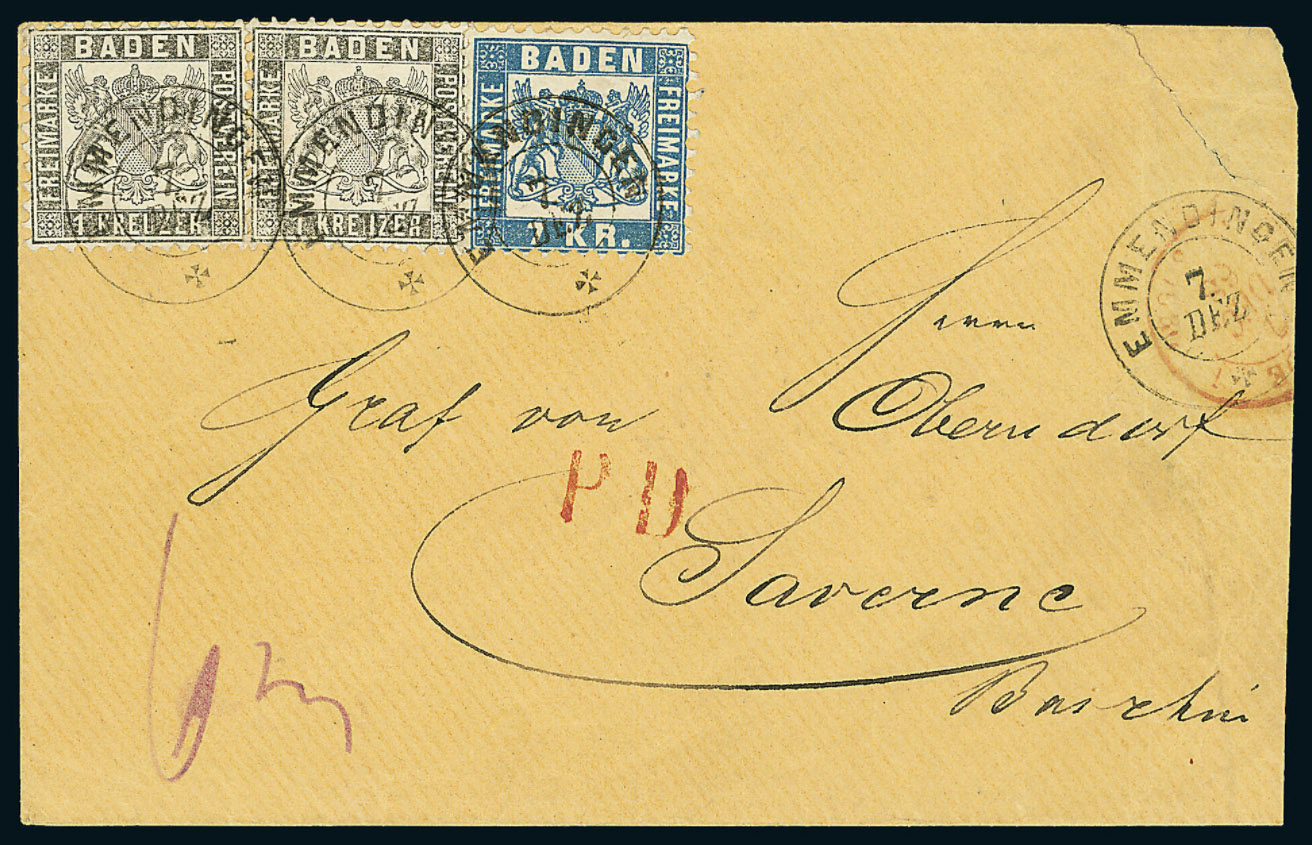 BADEN
FREIMARKE
POSTVEREIN
1 KREUZER
BADEN
FREIMARKE
POSTVEREIN
1 KREUZER
BADEN
FREIMARKE
FREIMARKE
7 KR.
EMMENDINGEN
7
DEZ
EMMENDINGEN
EMMENDINGEN
7
DEZ
EMMENDINGEN
7.
DEZ
Herrn
Graf von Oberndorf
P D
Saverne